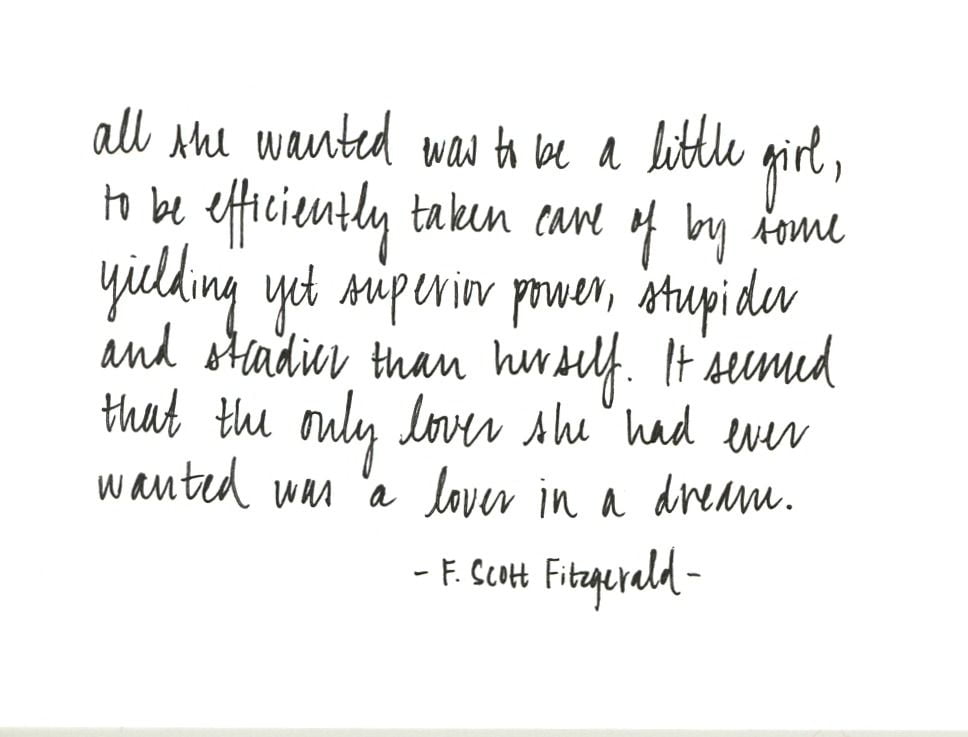 all she wanted was to be a little girl,
to be efficiently taken care of by some
yielding yet superior power, stupider
and steadier than herself. It seemed
that the only lover she had ever
wanted was a lover in a dream.
- F. Scott Fitzgerald -